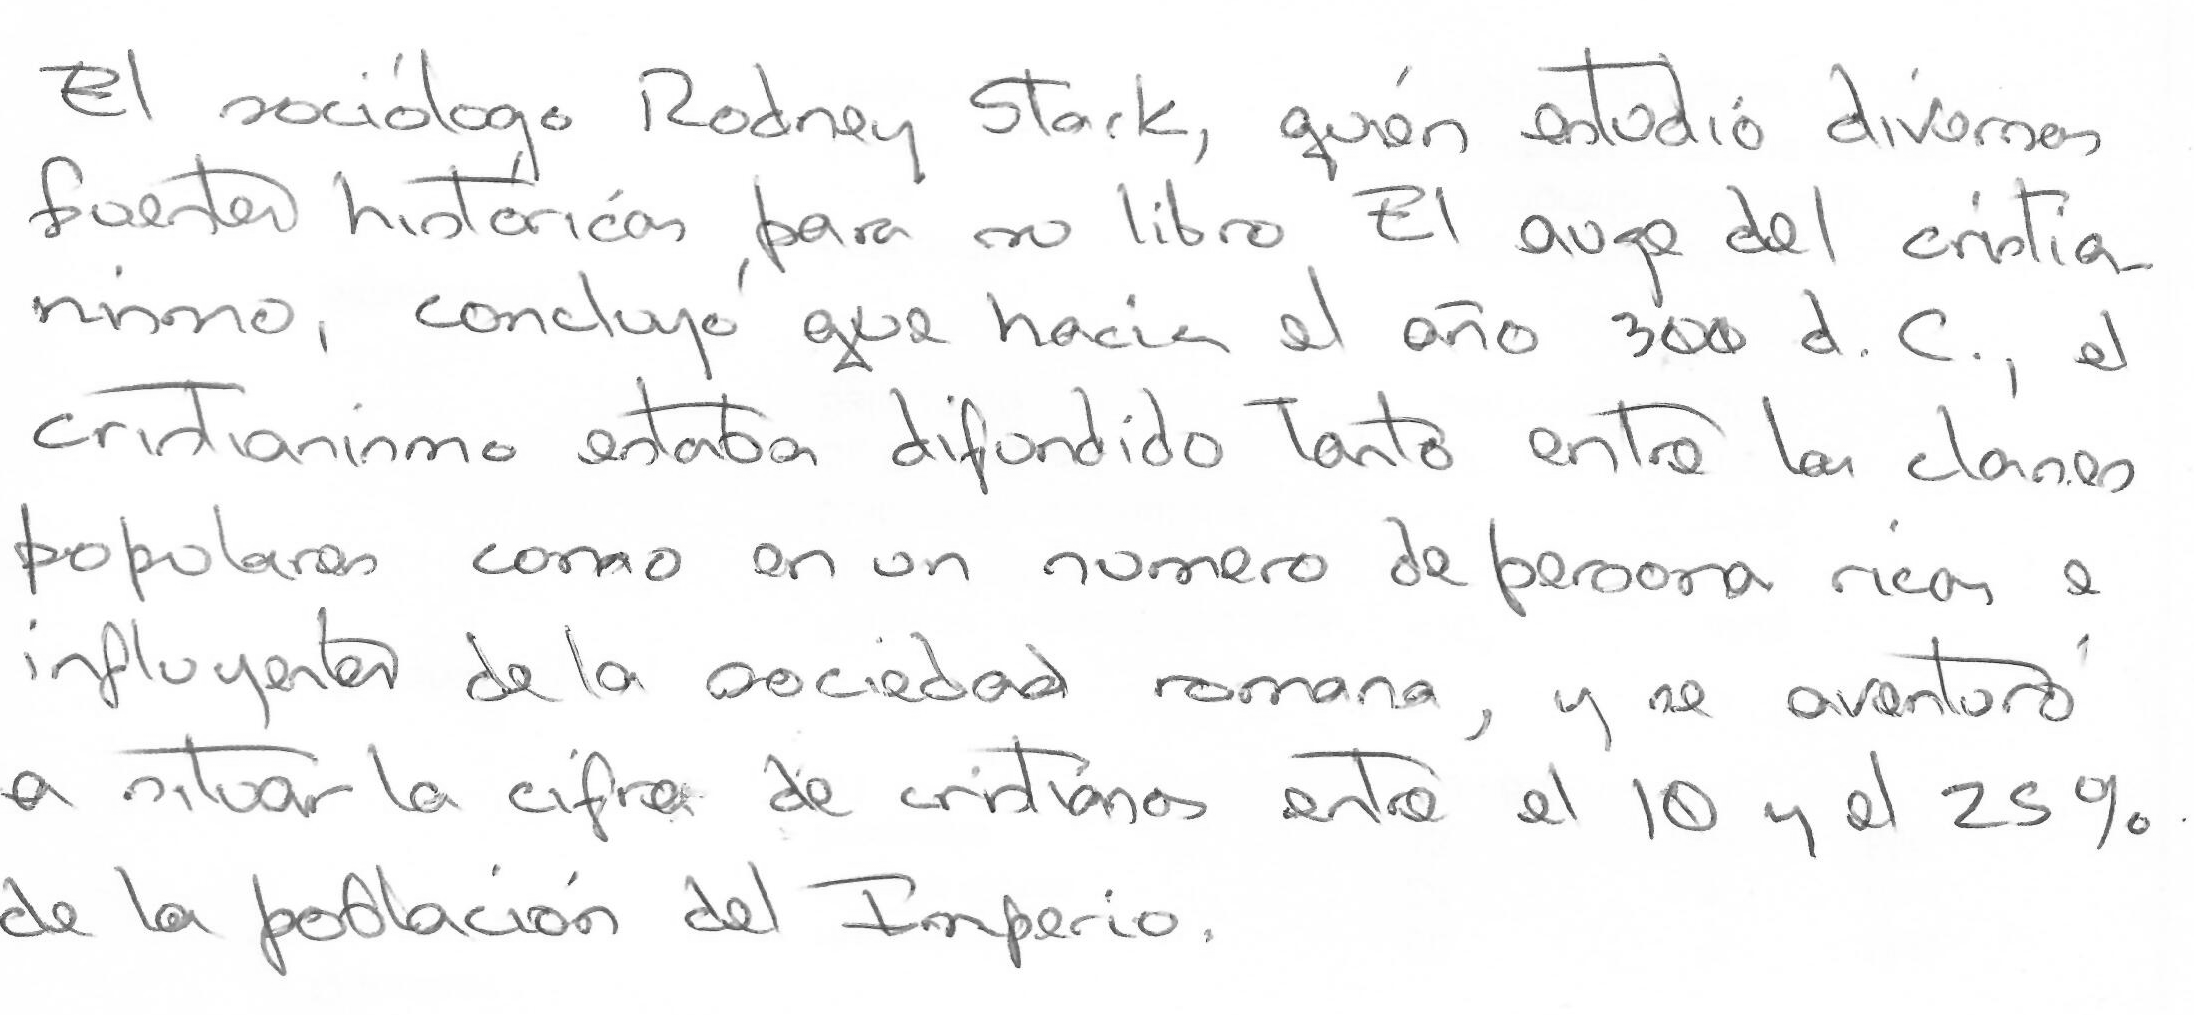 El sociólogo Rodney Stack, quién estudió diversas
fuentes históricas para su libro El auge del cristia-
nismo, concluyó que hacia el año 300 d. C., el
cristianismo estaba difundido tanto entre las clases
populares como en un numero de persona ricas e
influyentes de la sociedad romana, y se aventuró
a situar la cifra de cristianos entre el 10 y el 25%
de la población del Imperio.